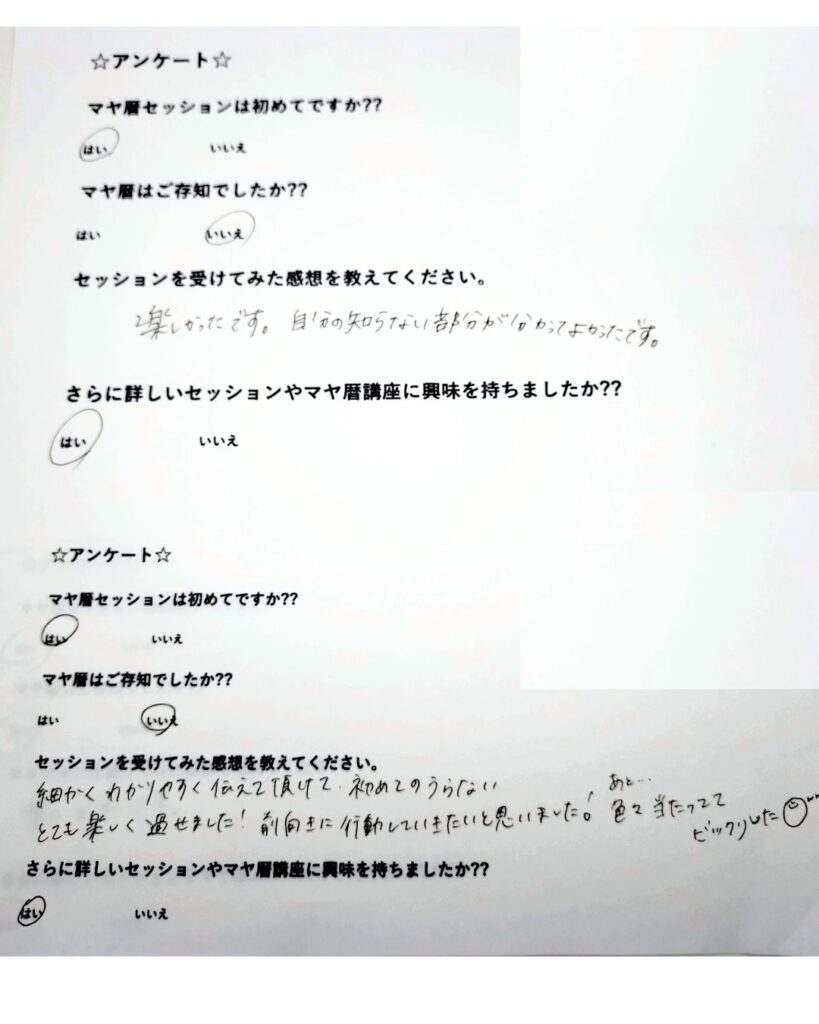 ☆アンケート☆
マヤ暦セッションは初めてですか??
はい いいえ
マヤ暦はご存知でしたか??
はい いいえ
セッションを受けてみた感想を教えてください。
楽しかったです。自分の知らない部分が分かってよかったです。
さらに詳しいセッションやマヤ暦講座に興味を持ちましたか??
はい いいえ
☆アンケート☆
マヤ暦セッションは初めてですか??
はい いいえ
マヤ暦はご存知でしたか??
はい いいえ
セッションを受けてみた感想を教えてください。
細かくわかりやすく伝えて頂けて、初めてのうらない
とても楽しく過せました! 前向きに行動していきたいと思いました!
あと…
色々当たってて
ビックリした
さらに詳しいセッションやマヤ暦講座に興味を持ちましたか??
はい いいえ